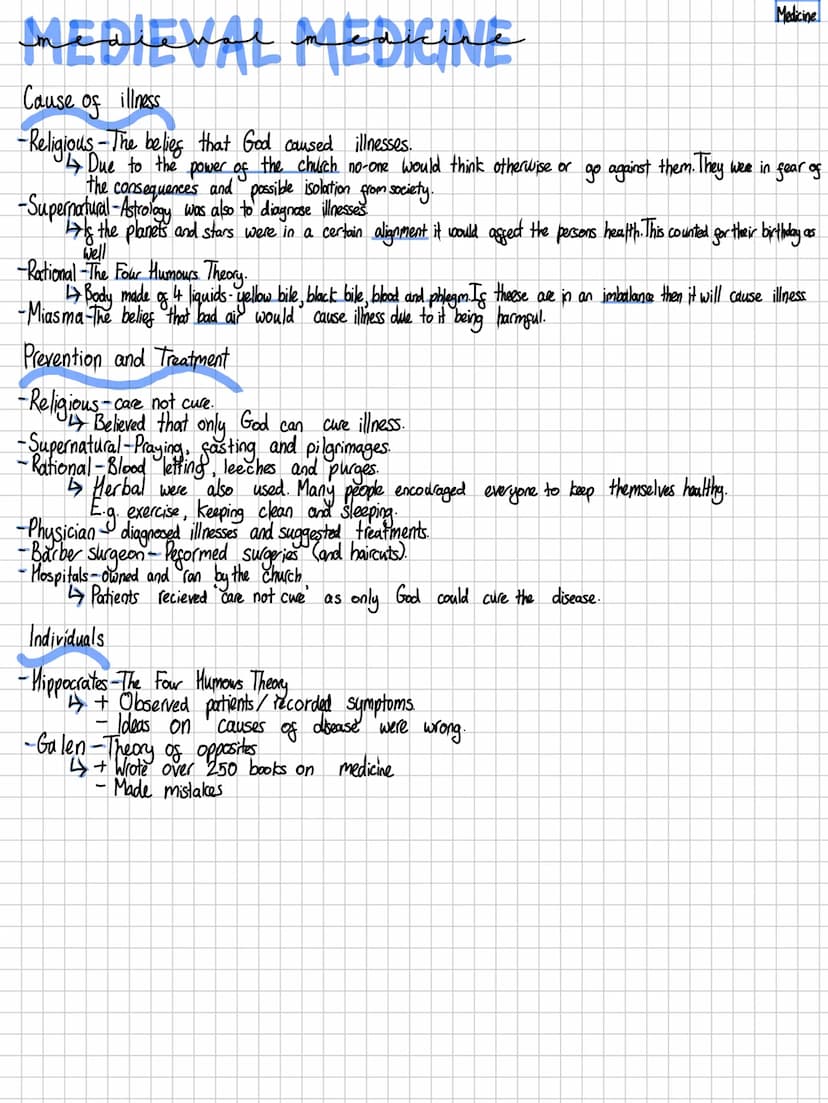 Medicine
MEDIEVAL MEDICINE
medieval medicine
Cause of illness
-Religious-The belief that God caused illnesses.
↳ Due to the power of the church no-one would think otherwise or go against them. They were in fear of
the consequences and possible isolation from society.
-Supernatural-Astrology was also to diagnose illnesses.
↳ If the planets and stars were in a certain alignment it would affect the persons health. This counted for their birthday as
well
-Rational-The Four Humours Theory.
↳ Body made of 4 liquids-yellow bile, black bile, blood and phlegm. If theese are in an imbalance then it will cause illness
-Miasma-The belief that bad air would cause illness due to it being harmful.
Prevention and Treatment
-Religious-care not cure.
↳ Believed that only God can cure illness.
-Supernatural-Praying, fasting and pilgrimages.
-Rational-Blood letting, leeches and purges.
↳ Herbal were also used. Many people encouraged everyone to keep themselves healthy.
E.g. exercise, keeping clean and sleeping.
-Physician-diagnosed illnesses and suggested treatments.
-Barber surgeon-Peformed surgeries (and haircuts).
-Hospitals-owned and ran by the church
↳ Patients recieved 'care not cure' as only God could cure the disease.
Individuals
-Hippocrates-The Four Humours Theory
↳ + Observed patients/recorded symptoms.
- Ideas on causes of disease were wrong.
-Galen-Theory of opposites
↳ + Wrote over 250 books on medicine
- Made mistakes